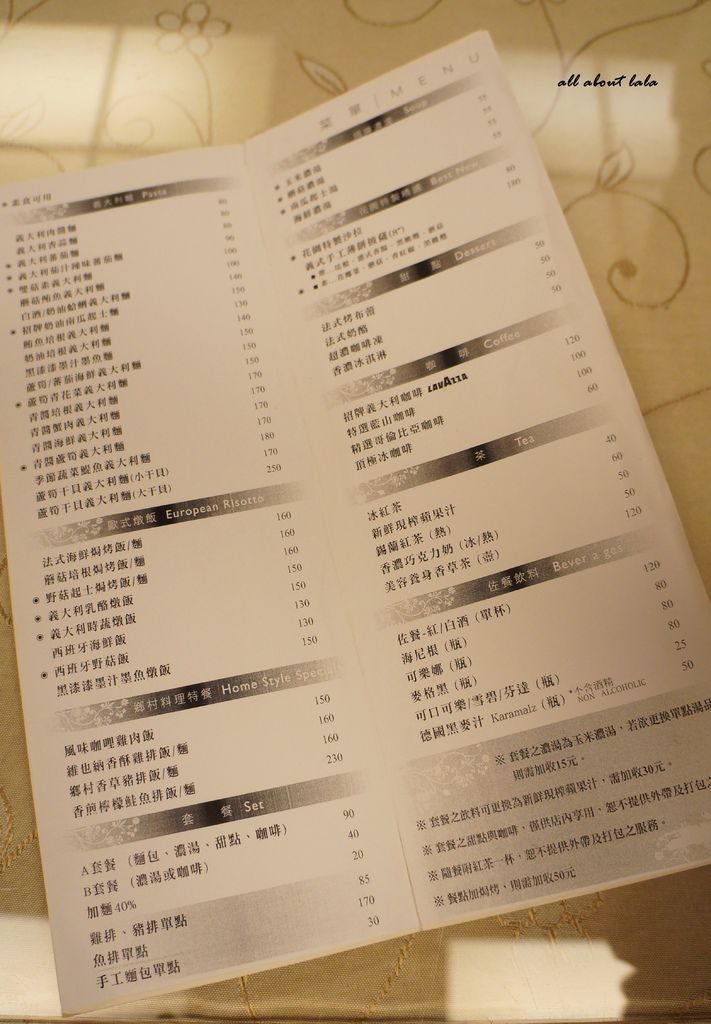 all about lala
菜單 | MENU
素食可用
義大利麵 Pasta
義大利肉醬麵 80
義大利香蒜麵 80
義大利蕃茄麵 90
義大利茄汁辣味蕃茄麵 100
雙菇素義大利麵 100
蘑菇鮪魚義大利麵 140
白酒/奶油蛤蜊義大利麵 150
招牌奶油南瓜起士麵 130
鮪魚培根義大利麵 140
奶油培根義大利麵 150
黑漆漆墨汁墨魚麵 150
蘆筍/蕃茄海鮮義大利麵 150
蘆筍青花菜義大利麵 170
青醬培根義大利麵 150
青醬蟹肉義大利麵 170
青醬海鮮義大利麵 170
青醬蘆筍義大利麵 170
季節蔬菜鯷魚義大利麵 180
蘆筍干貝義大利麵(小干貝) 170
蘆筍干貝義大利麵(大干貝) 250
歐式燉飯 European Risotto
法式海鮮焗烤飯/麵 160
蘑菇培根焗烤飯/麵 160
野菇起士焗烤飯/麵 160
義大利乳酪燉飯 150
義大利時蔬燉飯 150
西班牙海鮮飯 130
西班牙野菇飯 130
黑漆漆墨汁墨魚燉飯 150
鄉村料理特餐 Home Style Special
風味咖哩雞肉飯 150
維也納香酥雞排飯/麵 160
鄉村香草豬排飯/麵 160
香煎檸檬鮭魚排飯/麵 230
套餐 Set
A套餐 (麵包、濃湯、甜點、咖啡) 90
B套餐 (濃湯或咖啡) 40
加麵40% 20
雞排、豬排單點 85
魚排單點 170
手工麵包單點 30
Soup
玉米濃湯 55
蘑菇濃湯 55
南瓜起士湯 55
海鮮濃湯 55
花園特製精選 Best Now
花園特製沙拉 80
義式手工薄餅披薩(8") 180
甜點 Dessert
法式烤布蕾 50
法式奶酪 50
超濃咖啡凍 50
香濃冰淇淋 50
咖啡 Coffee
招牌義大利咖啡 LAVAZZA 120
特選藍山咖啡 100
精選哥倫比亞咖啡 100
頂極冰咖啡 60
茶 Tea
冰紅茶 40
新鮮現榨蘋果汁 60
錫蘭紅茶 (熱) 50
香濃巧克力奶 (冰/熱) 50
美容養身香草茶 (壺) 120
佐餐飲料 Beverages
佐餐-紅/白酒 (單杯) 120
海尼根 (瓶) 80
可樂娜 (瓶) 80
麥格黑 (瓶) 80
可口可樂/雪碧/芬達 (瓶) 25
德國黑麥汁 Karamalz (瓶) *不含酒精 NON ALCOHOLIC 50
※ 套餐之濃湯為玉米濃湯，若欲更換單點湯品
則需加收15元。
※ 套餐之飲料可更換為新鮮現榨蘋果汁，需加收30元。
※ 套餐之甜點與咖啡，僅供店內享用，恕不提供外帶及打包之
※ 隨餐附紅茶一杯，恕不提供外帶及打包之服務。
※ 餐點加焗烤，則需加收50元